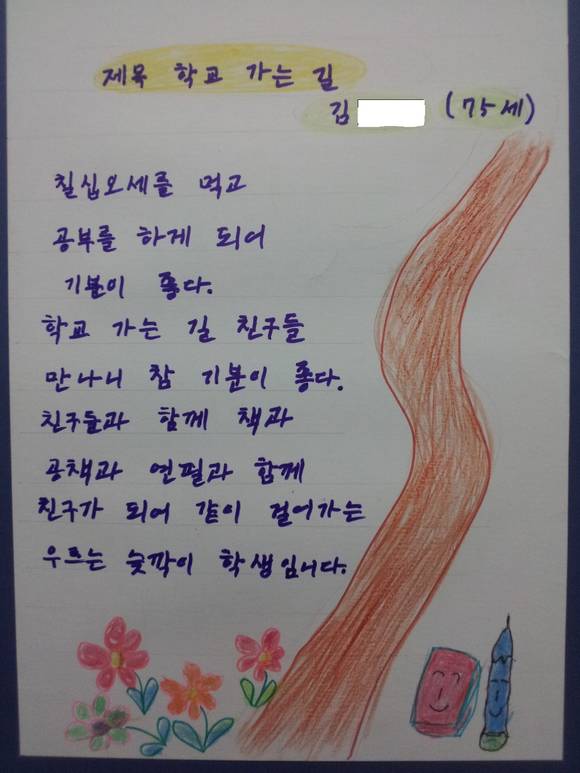 제목 학교 가는 길
김 (75세)
칠십오세를 먹고
공부를 하게 되어
기분이 좋다.
학교 가는 길 친구들
만나니 참 기분이 좋다.
친구들과 함께 책과
공책과 연필과 함께
친구가 되어 같이 걸어가는
우르는 늦깍이 학생입니다.